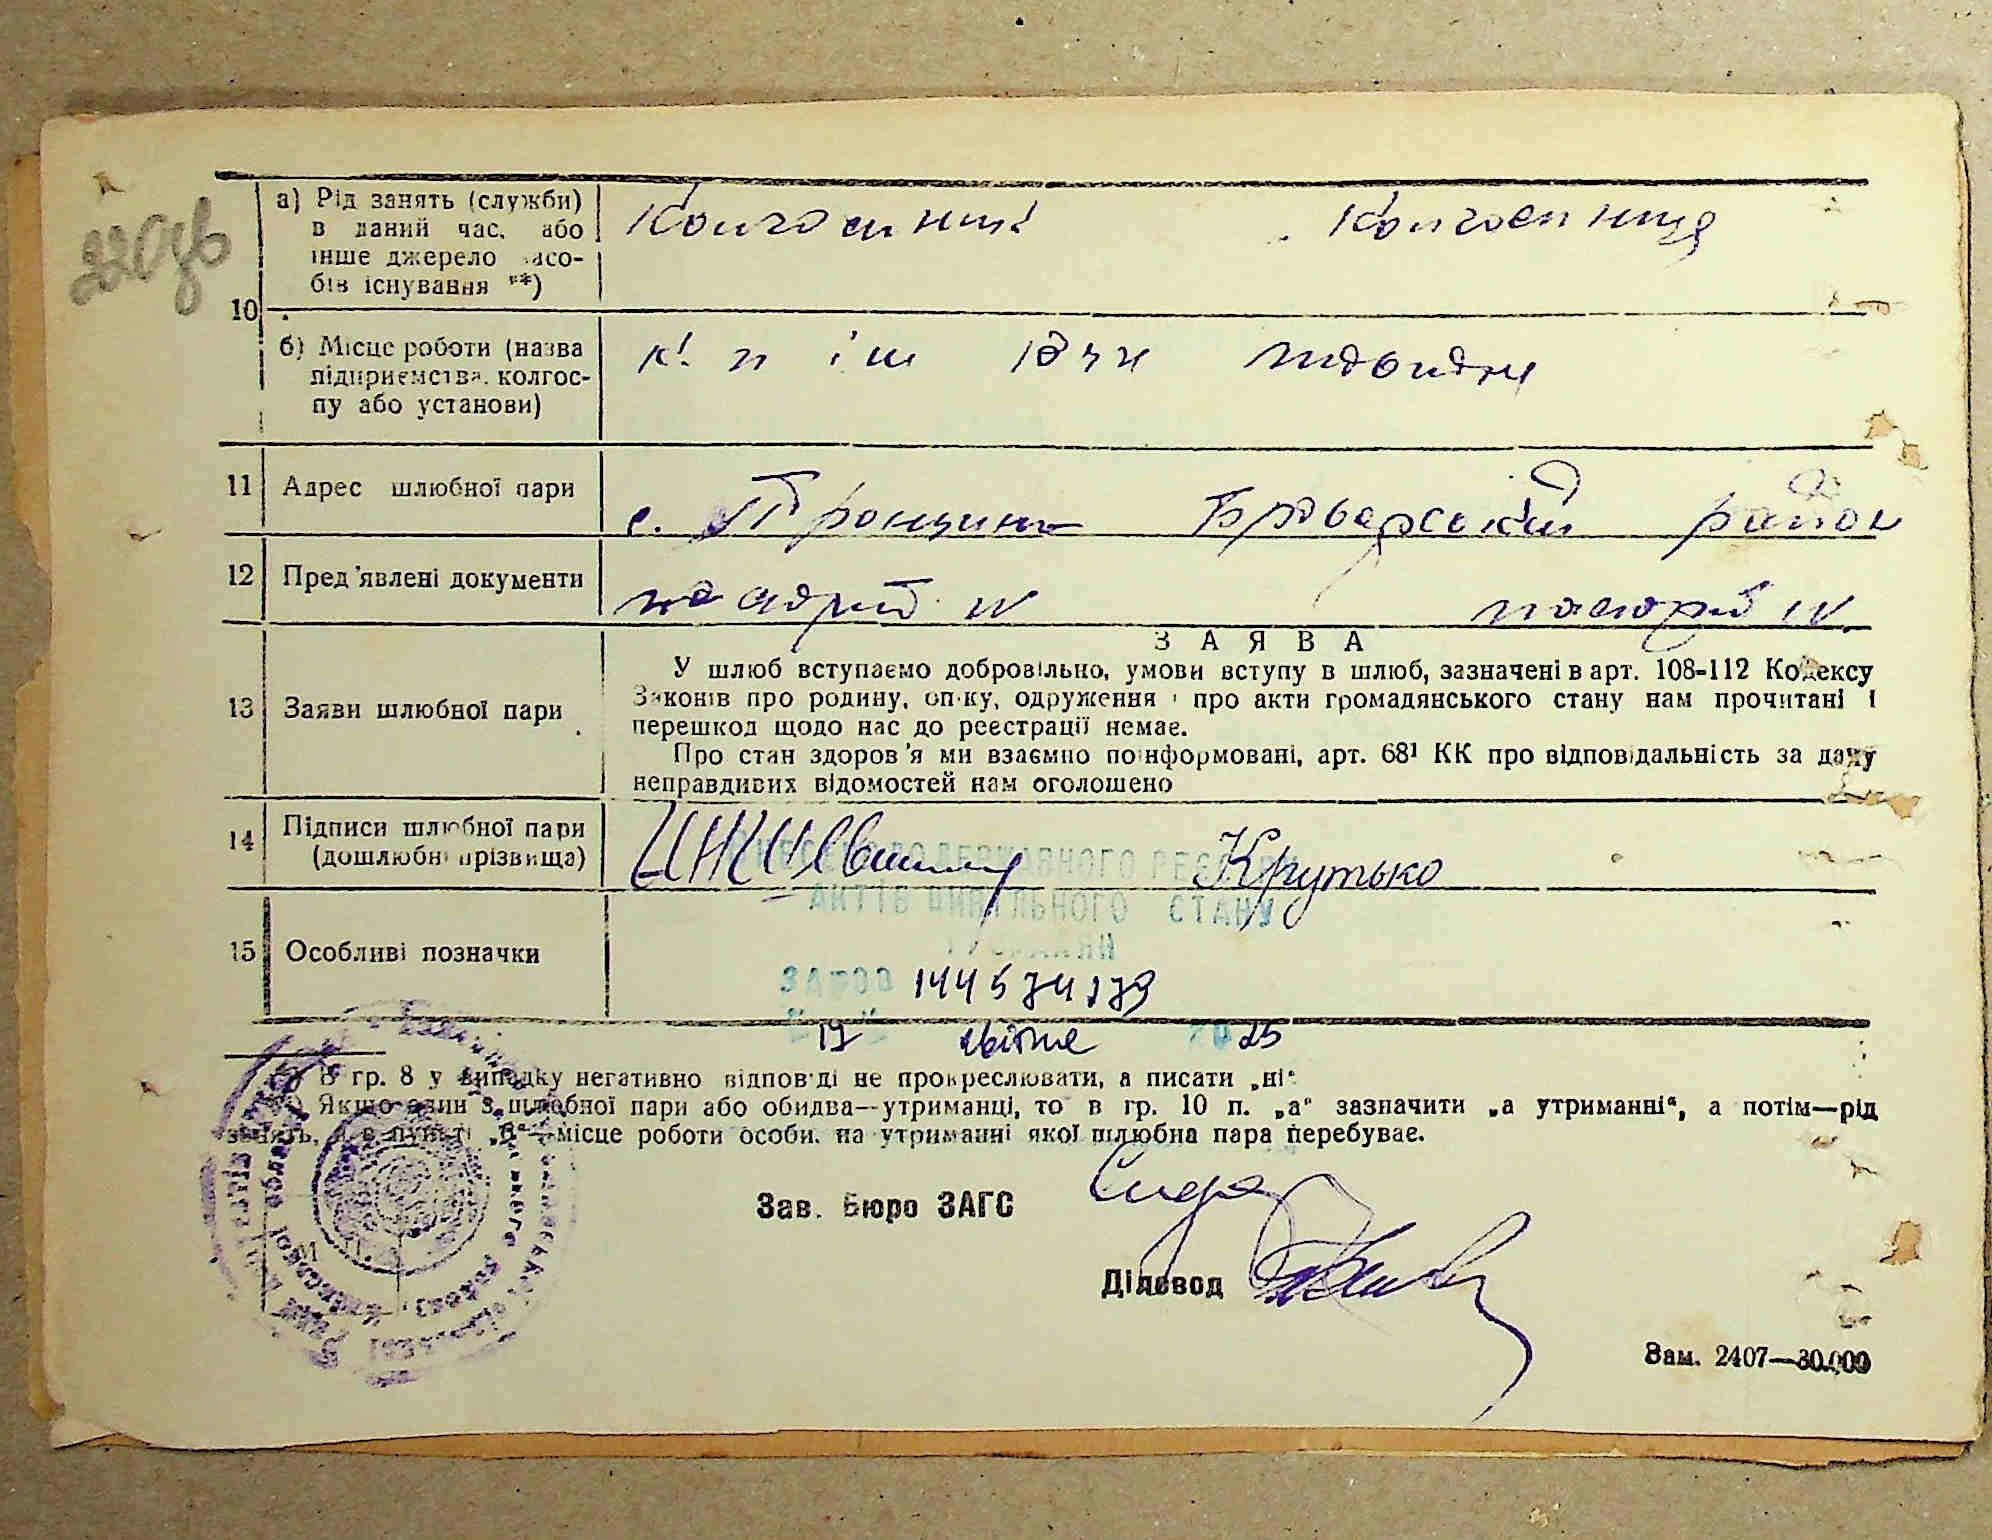 220 зв
10
а) Рід занять (служби) в даний час, або інше джерело засобів існування **)
Колгоспник Колгоспниця
б) Місце роботи (назва підприємства, колгоспу або установи)
к. п ім
11 Адрес шлюбної пари
с. Требухів Броварський район
12 Пред'явлені документи
паспорт IV паспорт IV
ЗАЯВА
13 Заяви шлюбної пари
У шлюб вступаємо добровільно, умови вступу в шлюб, зазначені в арт. 108-112 Кодексу
Законів про родину, опіку, одруження і про акти громадянського стану нам прочитані і
перешкод щодо нас до реєстрації немає.
Про стан здоров'я ми взаємно поінформовані, арт. 68¹ КК про відповідальність за дачу
неправдивих відомостей нам оголошено
14 Підписи шлюбної пари (дошлюбні прізвища)
Крутько
ВНЕСЕНО ДО ДЕРЖАВНОГО РЕЄСТРУ
АКТІВ ЦИВІЛЬНОГО СТАНУ
ГРОМАДЯН
15 Особливі позначки
ЗА № 00144574179
квітня 2025
*) В гр. 8 у випадку негативно відповіді не прокреслювати, а писати „ні“
**) Якщо один з шлюбної пари або обидва—утриманці, то в гр. 10 п. „а“ зазначити „а утриманні“, а потім—рід
занять, а в пункті „б“—місце роботи особи, на утриманні якої шлюбна пара перебуває.
Зав. Бюро ЗАГС
М. П.
Діловод
Зам. 2407—30.000